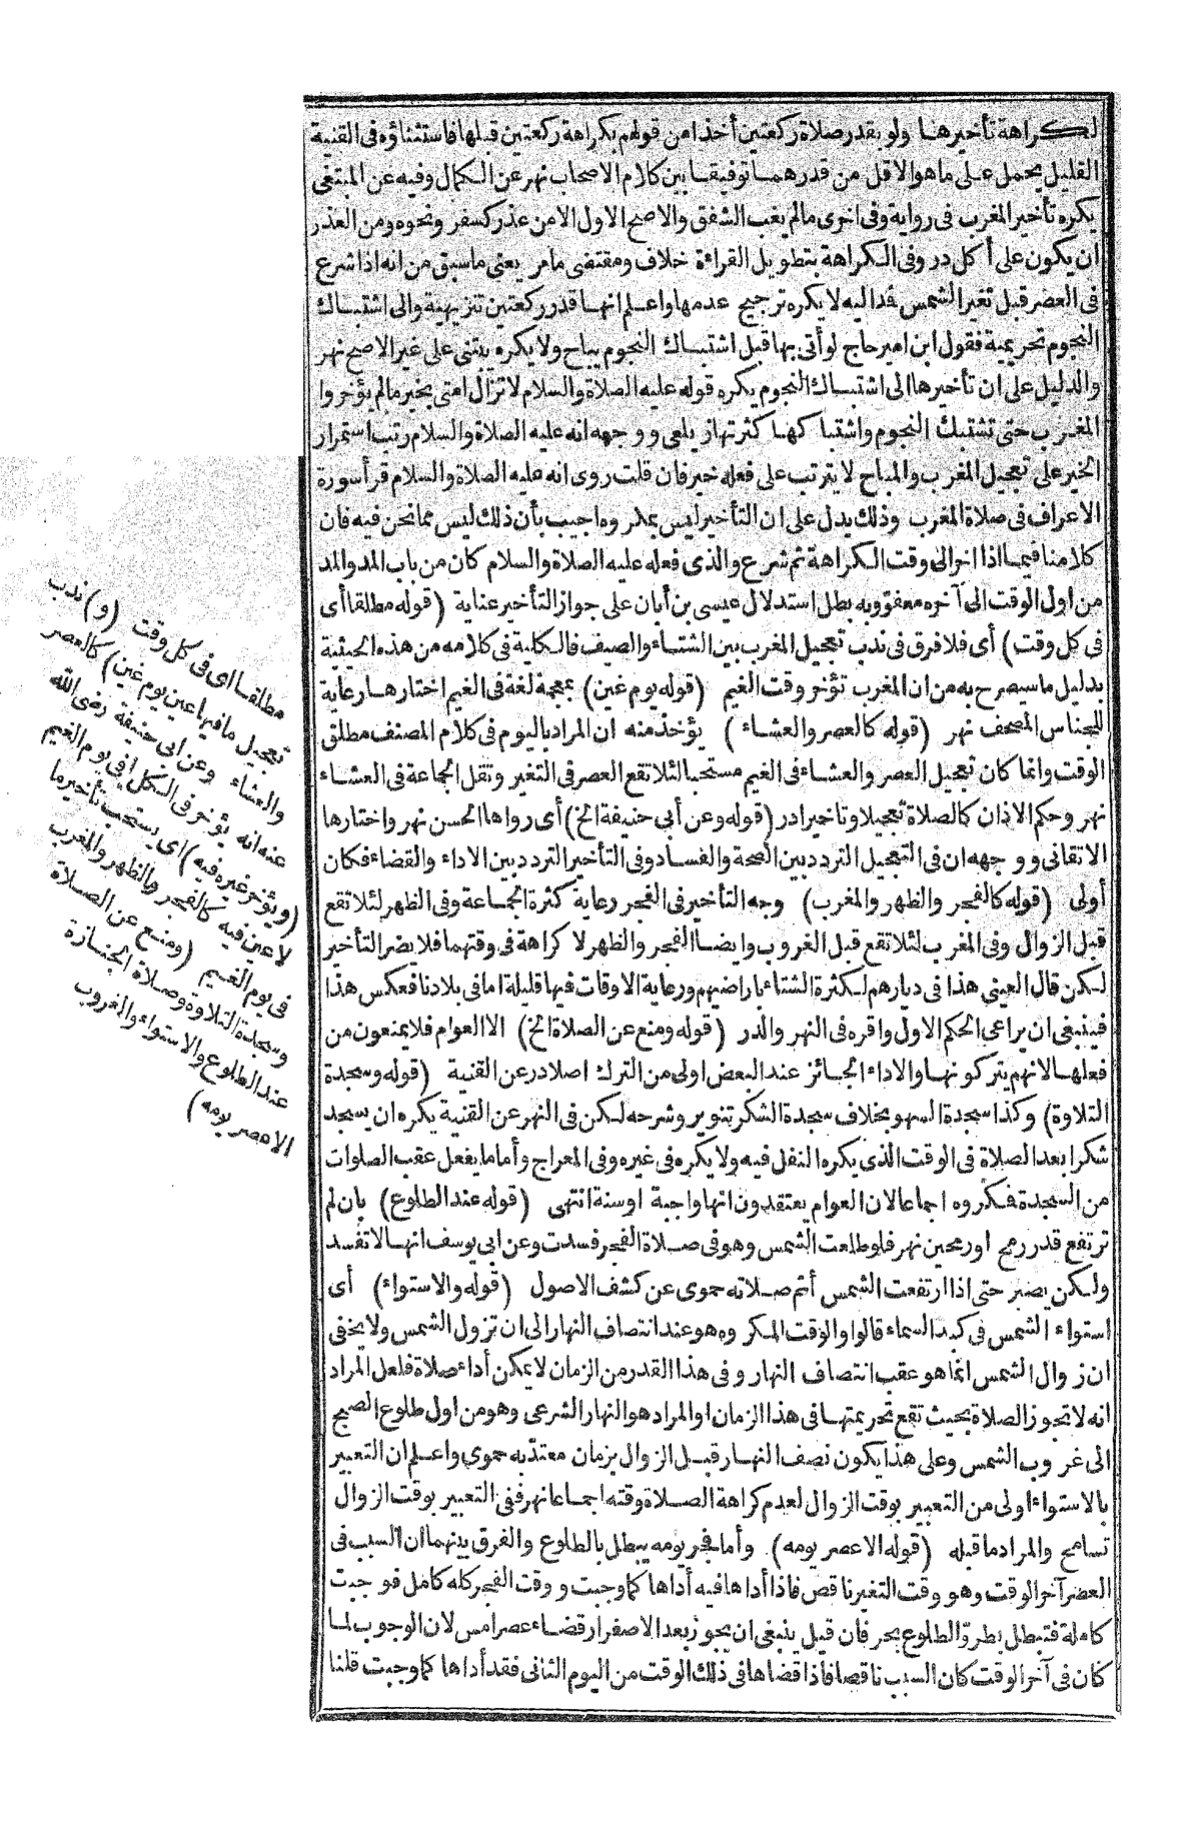 لكراهة تأخيرها ولو بقدر صلاة ركعتين أخذا من قولهم بكراهة ركعتين قبلها فاستثناؤه فى القنية
القليل يحمل على ما هو الاقل من قدرهما توفيقا بين كلام الاصحاب نهر عن الكمال وفيه عن المبتغى
يكره تأخير المغرب فى رواية وفى اخرى ما لم يغب الشفق والاصح الاول الا من عذر كسفر ونحوه ومن العذر
ان يكون على أكل در وفى الكراهة بتطويل القراءة خلاف ومقتضى ما مر يعنى ما سبق من انه اذا شرع
فى العصر قبل تغير الشمس فداليه لا يكره ترجيح عدمها واعلم انها قدر ركعتين تنزيهية والى اشتباك
النجوم تحريمية فقول ابن امير حاج لو أتى بها قبل اشتباك النجوم يباح ولا يكره يبتنى على غير الاصح نهر
والدليل على ان تأخيرها الى اشتباك النجوم يكره قوله عليه الصلاة والسلام لا تزال امتى بخير ما لم يؤخروا
المغرب حتى تشتبك النجوم واشتباكها كثرتها زيلعى ووجهه انه عليه الصلاة والسلام رتب استمرار
الخير على تعجيل المغرب والمباح لا يترتب على فعله خير فان قلت روى انه عليه الصلاة والسلام قرأ سورة
الاعراف فى صلاة المغرب وذلك يدل على ان التأخير ليس بمكروه اجيب بأن ذلك ليس مما نحن فيه فان
كلامنا فيما اذا اخر الى وقت الكراهة ثم شرع والذى فعله عليه الصلاة والسلام كان من باب المد والمد
من اول الوقت الى آخره معفو وبه بطل استدلال عيسى بن أبان على جواز التأخير عناية (قوله مطلقا أى
فى كل وقت) أى فلا فرق فى ندب تعجيل المغرب بين الشتاء والصيف فالكلية فى كلامه من هذه الحيثية
بدليل ما سيصرح به من ان المغرب تؤخر وقت الغيم (قوله يوم غين) بمعجمة لغة فى الغيم اختارها رعاية
للجناس المصحف نهر (قوله كالعصر والعشاء) يؤخذ منه ان المراد باليوم فى كلام المصنف مطلق
الوقت وانما كان تعجيل العصر والعشاء فى الغيم مستحبا لئلا تقع العصر فى التغير وتقل الجماعة فى العشاء
نهر وحكم الاذان كالصلاة تعجيلا وتاخيرا در (قوله وعن أبى حنيفة الخ) أى رواها الحسن نهر واختارها
الاتقانى ووجهه ان فى التعجيل التردد بين الصحة والفساد وفى التأخير التردد بين الاداء والقضاء فكان
أولى (قوله كالفجر والظهر والمغرب) وجه التأخير فى الفجر رعاية كثرة الجماعة وفى الظهر لئلا تقع
قبل الزوال وفى المغرب لئلا تقع قبل الغروب وايضا الفجر والظهر لا كراهة فى وقتهما فلا يضر التأخير
لكن قال العينى هذا فى ديارهم لكثرة الشتاء باراضيهم ورعاية الاوقات فيها قليلة اما فى بلادنا فعكس هذا
فينبغى ان يراعى الحكم الاول واقره فى النهر والدر (قوله ومنع عن الصلاة الخ) الا العوام فلا يمنعون من
فعلها لانهم يتركونها والاداء الجائز عند البعض اولى من الترك اصلا در عن القنية (قوله وسجدة
التلاوة) وكذا سجدة السهو بخلاف سجدة الشكر تنوير وشرحه لكن فى النهر عن القنية يكره ان يسجد
شكرا بعد الصلاة فى الوقت الذى يكره النفل فيه ولا يكره فى غيره وفى المعراج وأما ما يفعل عقب الصلوات
من السجدة فمكروه اجماعا لان العوام يعتقدون انها واجبة او سنة انتهى (قوله عند الطلوع) بان لم
ترتفع قدر رمح او رمحين نهر فلو طلعت الشمس وهو فى صلاة الفجر فسدت وعن ابى يوسف انها لا تفسد
ولكن يصبر حتى اذا ارتفعت الشمس أتم صلاته حموى عن كشف الاصول (قوله والاستواء) أى
استواء الشمس فى كبد السماء قالوا والوقت المكروه هو عند انتصاف النهار الى ان تزول الشمس ولا يخفى
ان زوال الشمس انما هو عقب انتصاف النهار وفى هذا القدر من الزمان لا يمكن أداء صلاة فلعل المراد
انه لا تجوز الصلاة بحيث تقع تحريمتها فى هذا الزمان او المراد هو النهار الشرعى وهو من اول طلوع الصبح
الى غروب الشمس وعلى هذا يكون نصف النهار قبل الزوال بزمان معتد به حموى واعلم ان التعبير
بالاستواء اولى من التعبير بوقت الزوال لعدم كراهة الصلاة وقته اجماعا نهر ففى التعبير بوقت الزوال
تسامح والمراد ما قبله (قوله الا عصر يومه) وأما فجر يومه يبطل بالطلوع والفرق بينهما ان السبب فى
العصر آخر الوقت وهو وقت التغير ناقص فاذا أداها فيه أداها كما وجبت ووقت الفجر كله كامل فوجبت
كاملة فتبطل بطرو الطلوع بحر فان قيل ينبغى ان يجوز بعد الاصفرار قضاء عصر امس لان الوجوب لما
كان فى آخر الوقت كان السبب ناقصا فاذا قضاها فى ذلك الوقت من اليوم الثانى فقد أداها كما وجبت قلنا
مطلقا اى فى كل وقت (و) ندب
تعجيل ما فيها عين يوم غين) كالعصر
والعشاء وعن ابى حنيفة رضى الله
عنه انه يؤخر فى الكل فى يوم الغيم
(ويؤخر غيره فيه) اى يستحب تأخير ما
لا عين فيه كالفجر والظهر والمغرب
فى يوم الغيم (ومنع عن الصلاة
وسجدة التلاوة وصلاة الجنازة
عند الطلوع والاستواء والغروب
الا عصر يومه)